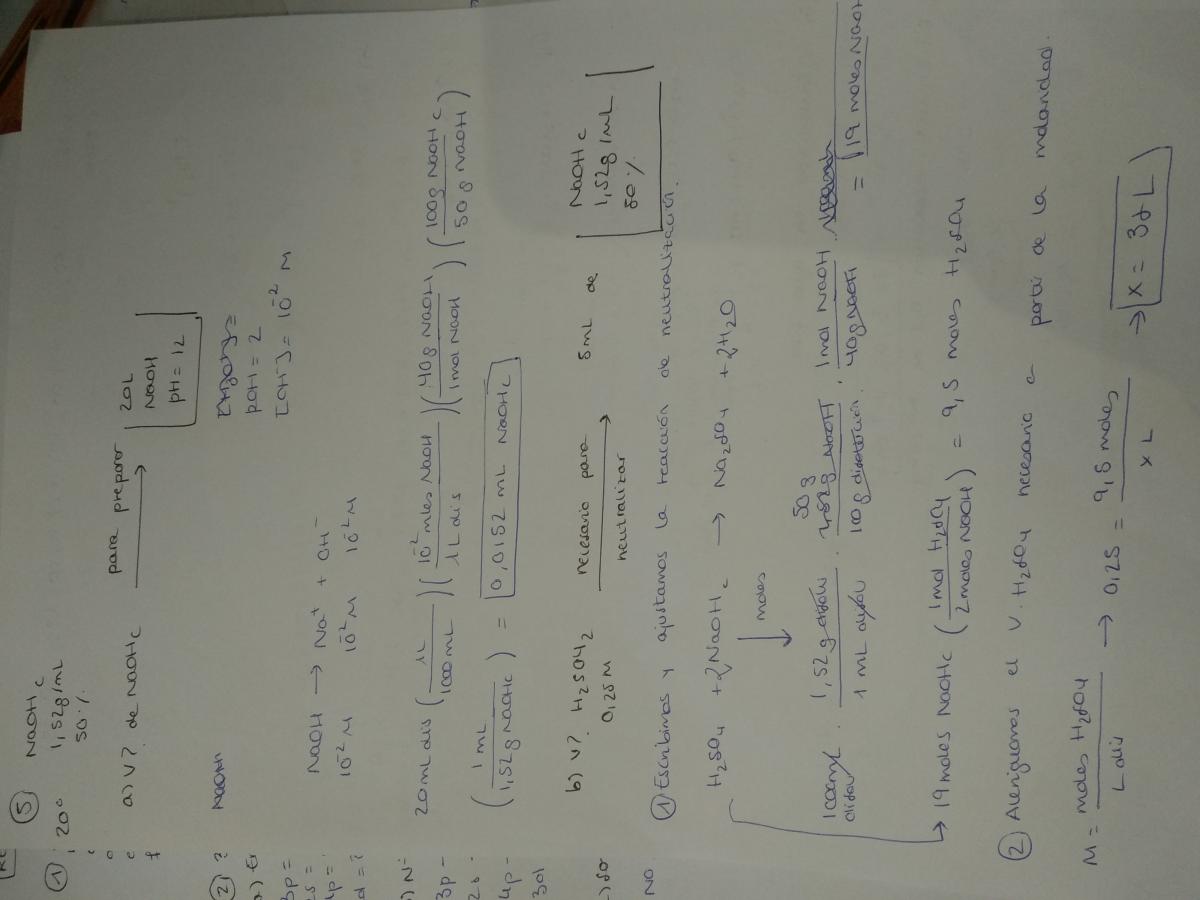 5 NaOH c
1,52g/mL
50%
a) V? de NaOHc para preparar → 20L
NaOH
pH = 12
NaOH
pOH = 2
[OH-] = 10^-2 M
NaOH → Na+ + OH-
10^-2 M 10^-2 M 10^-2 M
20 mL dis (1L / 1000 mL) (10^-2 mles NaOH / 1 L dis) (40g NaOH / 1mol NaOH) (100g NaOH c / 50 g NaOH)
(1 mL / 1,52g NaOHc) = 0,0152 mL NaOHc
b) V? H2SO42 necesario para → 5mL de NaOH c
0,25 M neutralizar 1,52g/mL
50%
1 Escribimos y ajustamos la reacción de neutralización.
H2SO4 + 2NaOHc → Na2SO4 + 2H2O
↓ moles
1000mL disolu · 1,52g disolu / 1 mL disolu · 50 g NaOH / 100g disolución · 1mol NaOH / 40g NaOH = 19 moles NaOH
→ 19 moles NaOHc (1mol H2SO4 / 2moles NaOH) = 9,5 moles H2SO4
2 Averiguamos el V. H2SO4 necesario a partir de la molaridad.
M = moles H2SO4 / L dis → 0,25 = 9,5 moles / x L → x = 38 L
1 20º
2 ?
3p =
4p =
3p -
4p -
3d1
NO